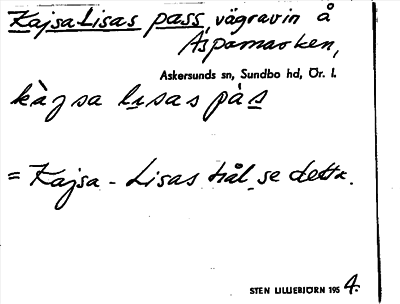 KajsaLisas pass, vägravin å
Åspamarken,
Askersunds sn, Sundbo hd, Ör. l.
kàjsa lisas pàs
= Kajsa - Lisas hål, se detta.
STEN LILLIEBJÖRN 195 4.